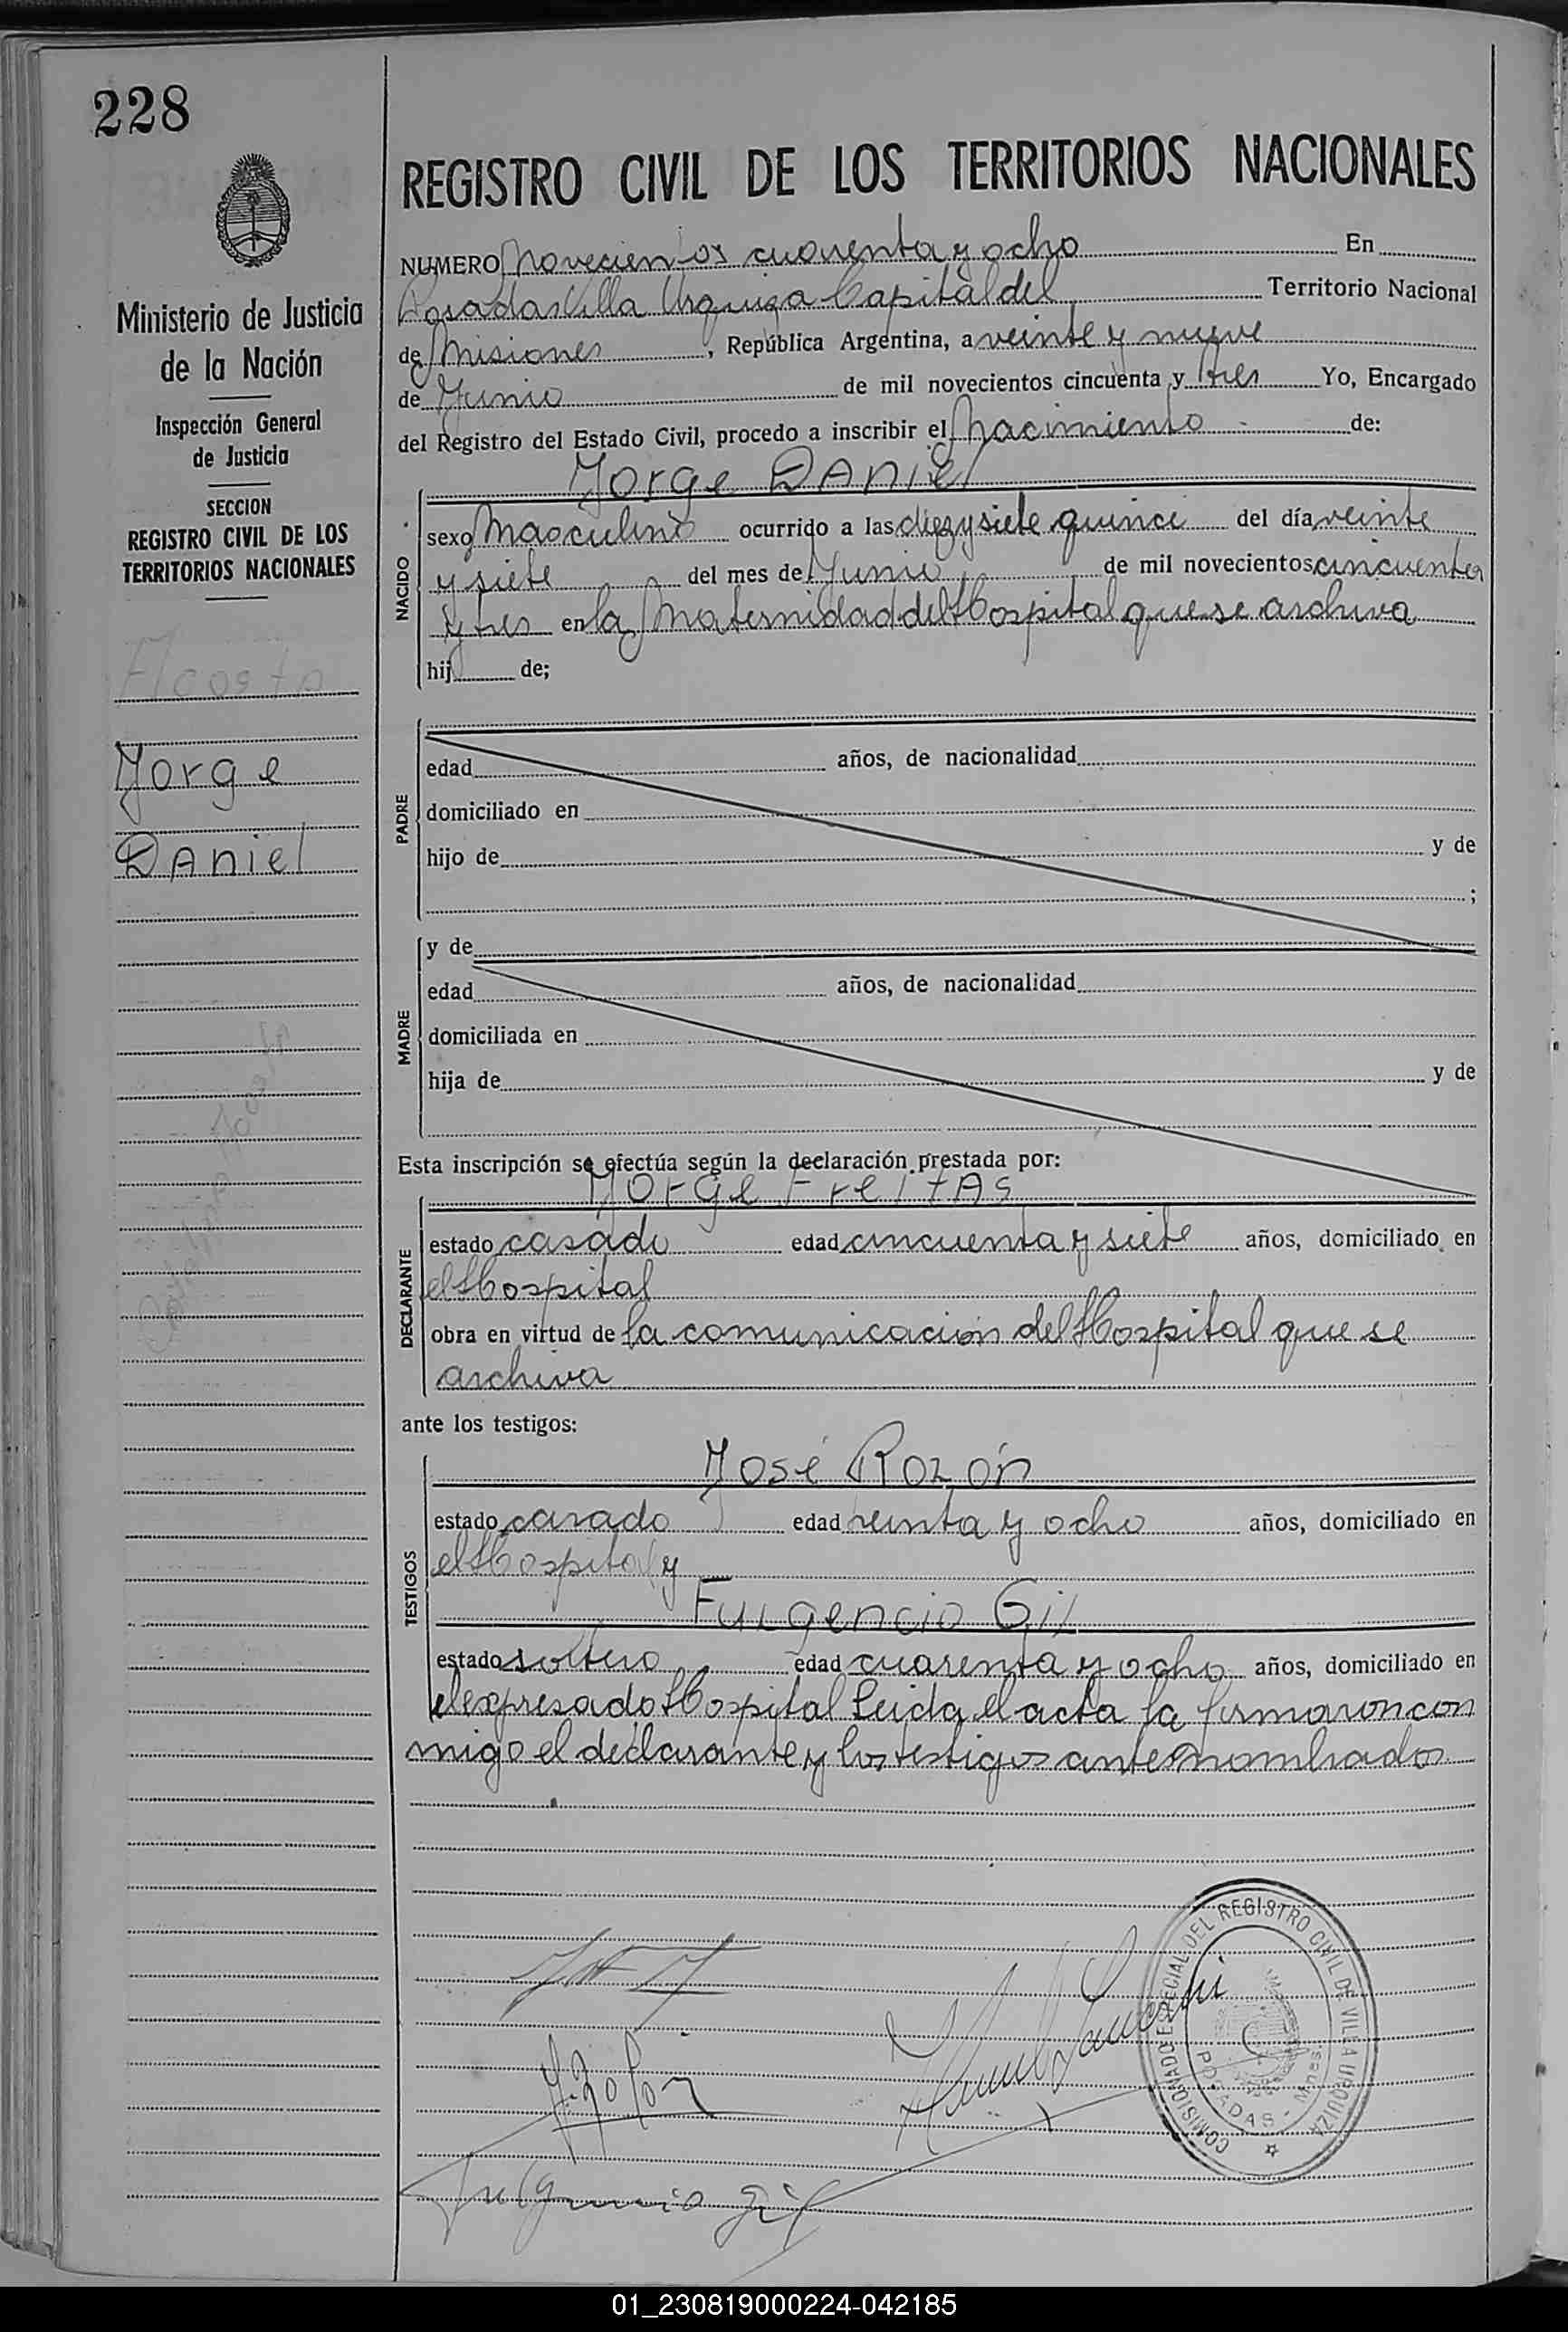 228
REGISTRO CIVIL DE LOS TERRITORIOS NACIONALES
Ministerio de Justicia
de la Nación
Inspección General
de Justicia
SECCION
REGISTRO CIVIL DE LOS
TERRITORIOS NACIONALES
Acosta
Jorge
Daniel
NUMERO novecientos cuarenta y ocho En
Posadas Villa Urquiza Capital del Territorio Nacional
de Misiones, República Argentina, a veinte y nueve
de Junio de mil novecientos cincuenta y tres Yo, Encargado
del Registro del Estado Civil, procedo a inscribir el nacimiento de:
Jorge Daniel
NACIDO
sexo Masculino ocurrido a las diez y siete quince del día veinte
y siete del mes de Junio de mil novecientos cincuenta
y tres en la Maternidad del Hospital que se archiva
hij de;
PADRE
edad años, de nacionalidad
domiciliado en
hijo de y de
;
MADRE
y de
edad años, de nacionalidad
domiciliada en
hija de y de
Esta inscripción se efectúa según la declaración prestada por:
Jorge Freitas
DECLARANTE
estado casado edad cincuenta y siete años, domiciliado en
el Hospital
obra en virtud de la comunicación del Hospital que se
archiva
ante los testigos:
José Rozón
TESTIGOS
estado casado edad treinta y ocho años, domiciliado en
el Hospital y
Fulgencio Gil
estado soltero edad cuarenta y ocho años, domiciliado en
el expresado Hospital Leida el acta la firmaron con
migo el declarante y los testigos antes nombrados
COMISIONADO ESPECIAL DEL REGISTRO CIVIL DE VILLA URQUIZA
POSADAS - Mnes.
Fulgencio Gil
01_230819000224-042185